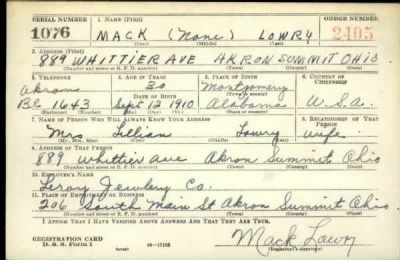 SERIAL NUMBER 1. NAME (Print) ORDER NUMBER
1076 MACK (None) LOWRY 2405
(First) (Middle) (Last)
2. ADDRESS (Print)
889 WHITTIER AVE AKRON SUMMIT OHIO
(Number and street or R. F. D. number) (Town) (County) (State)
3. TELEPHONE 4. AGE IN YEARS 5. PLACE OF BIRTH 6. COUNTRY OF CITIZENSHIP
30 Montgomery
DATE OF BIRTH (Town or county)
BL 1643 Sept 12 1910 Alabama U.S.A.
(Exchange) (Number) (Mo.) (Day) (Yr.) (State or country)
7. NAME OF PERSON WHO WILL ALWAYS KNOW YOUR ADDRESS 8. RELATIONSHIP OF THAT PERSON
Mrs Lillian Lowry Wife
(Mr., Mrs., Miss) (First) (Middle) (Last)
9. ADDRESS OF THAT PERSON
889 Whittier Ave Akron Summit Ohio
(Number and street or R. F. D. number) (Town) (County) (State)
10. EMPLOYER'S NAME
Leroy Jewlery Co.
11. PLACE OF EMPLOYMENT OR BUSINESS
206 South Main St Akron Summit Ohio
(Number and street or R. F. D. number) (Town) (County) (State)
I AFFIRM THAT I HAVE VERIFIED ABOVE ANSWERS AND THAT THEY ARE TRUE.
REGISTRATION CARD
D. S. S. Form 1 16-17105 Mack Lowry
(Registrant's signature)